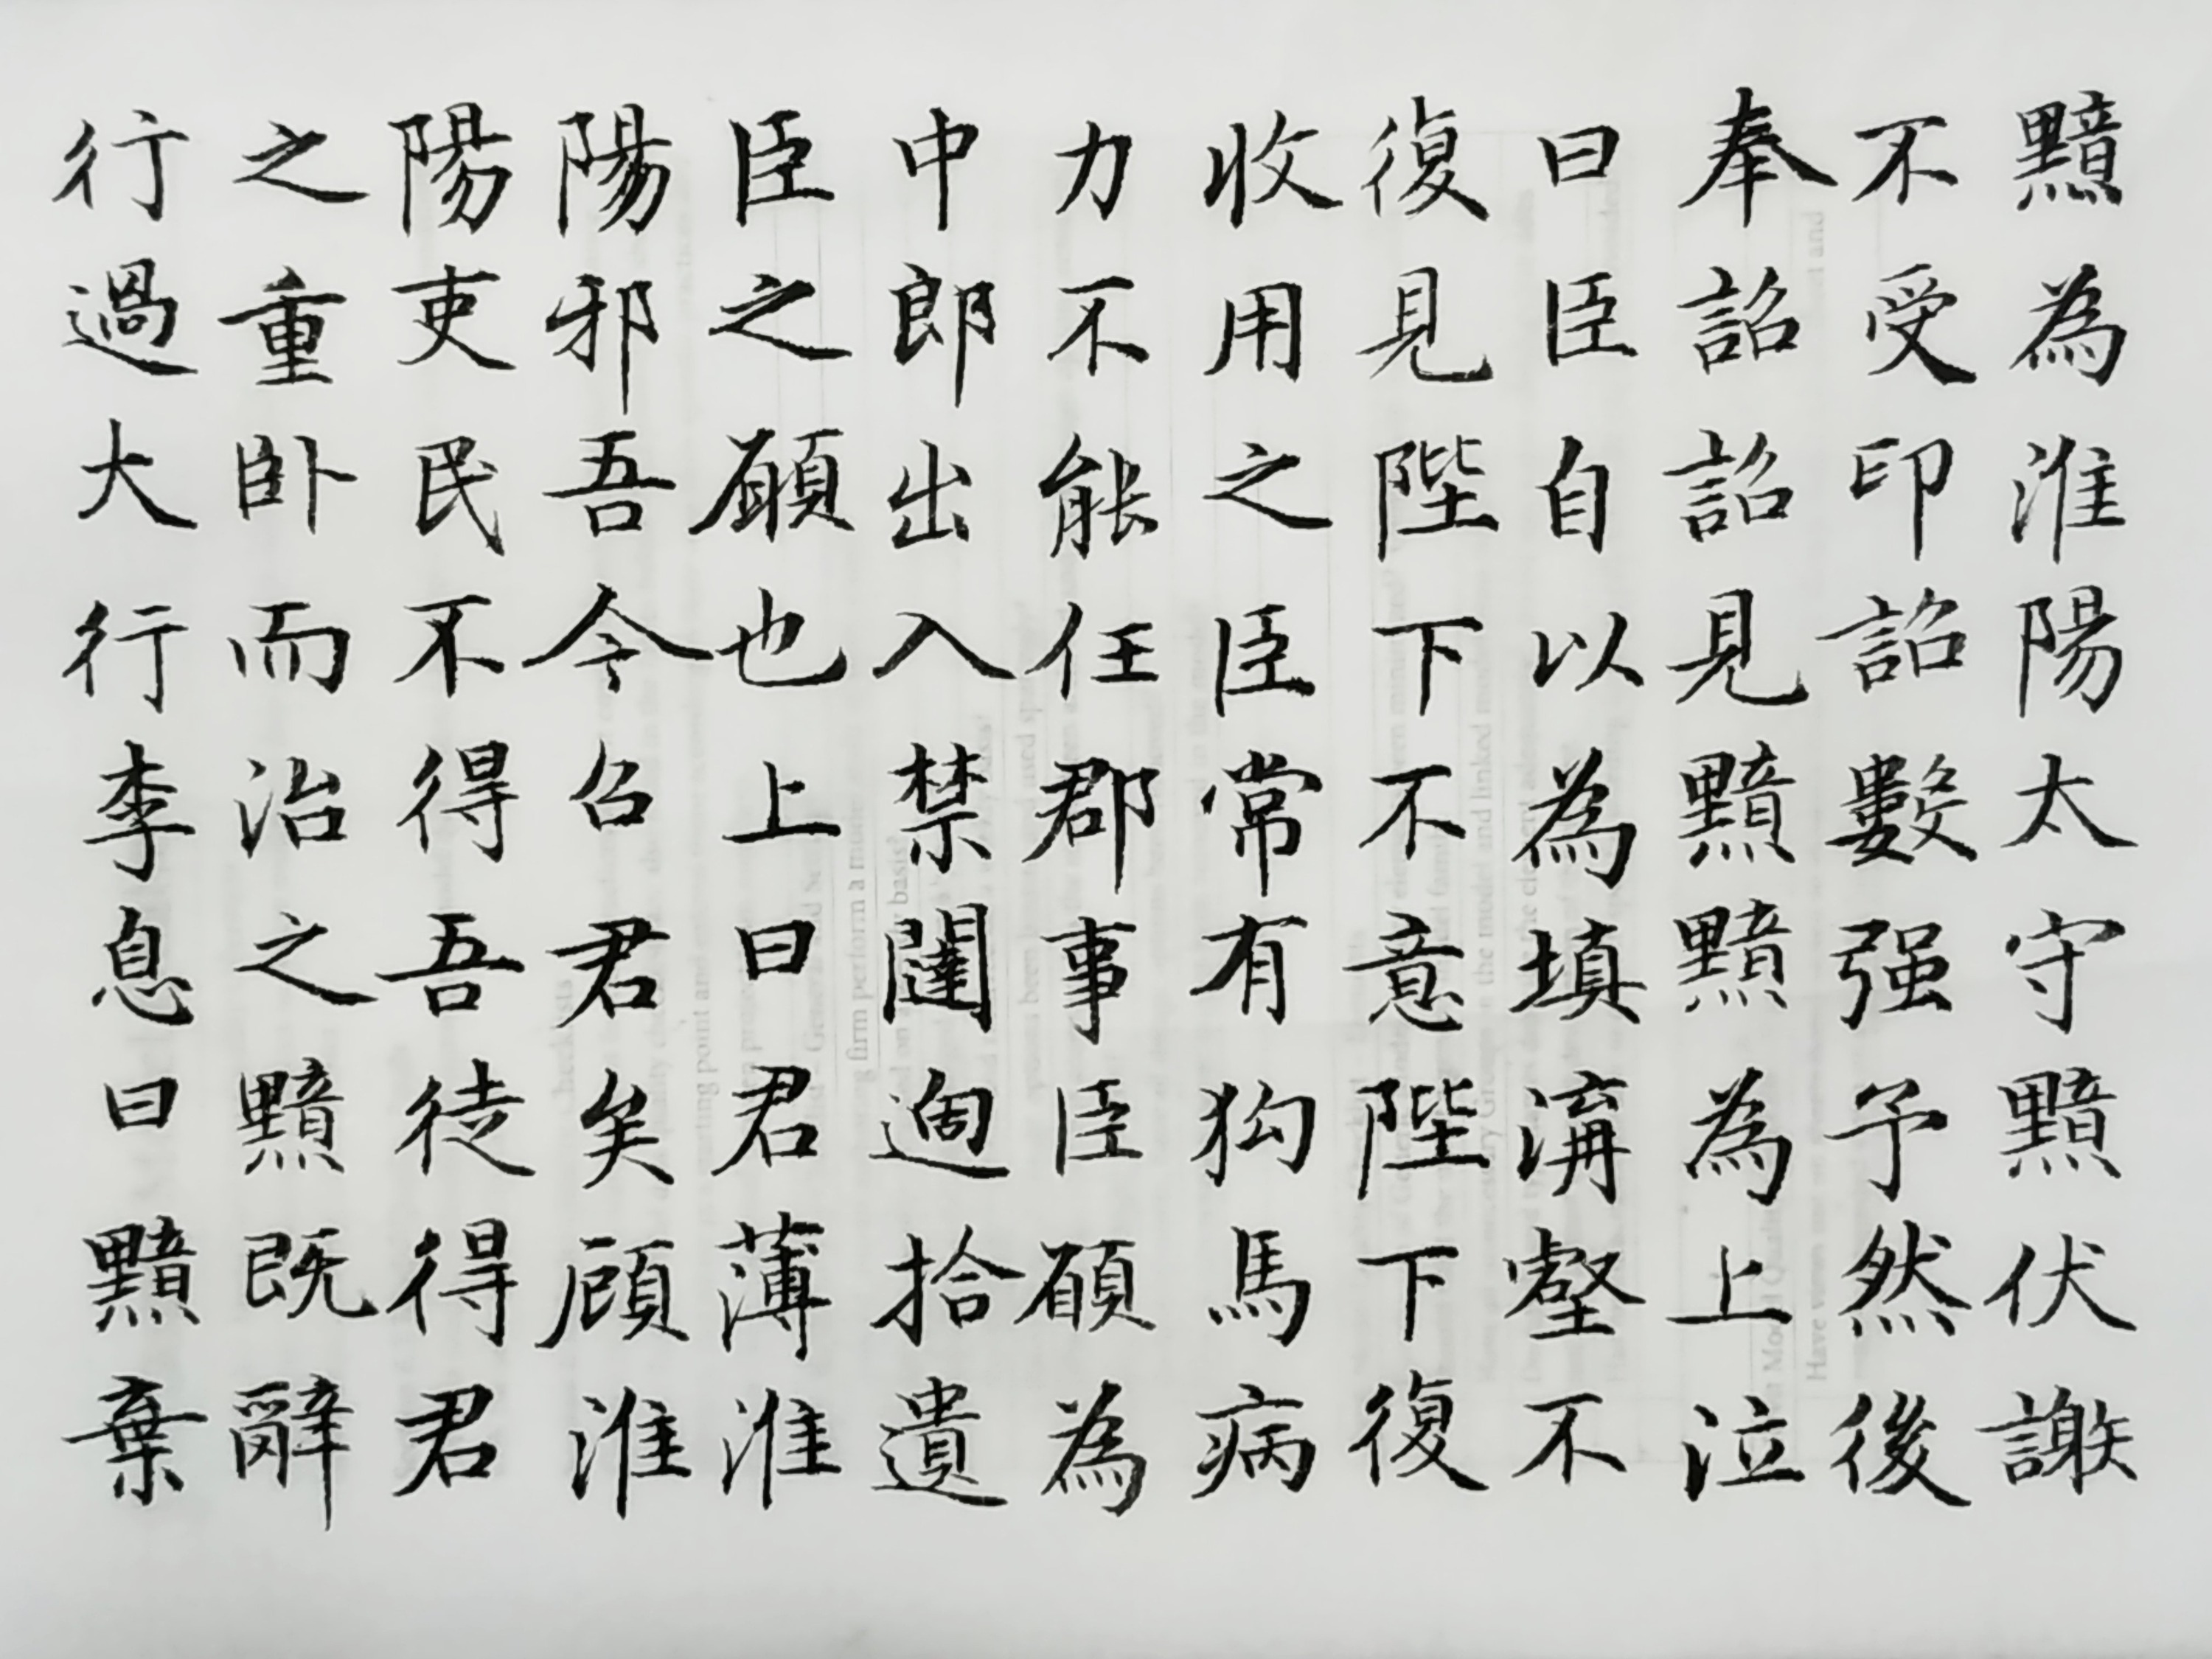 黯為淮陽太守黯伏謝
不受印詔數强予然後
奉詔詔見黯黯為上泣
曰臣自以為填溝壑不
復見陛下不意陛下復
收用之臣常有狗馬病
力不能任郡事臣願為
中郎出入禁闥過拾遺
臣之願也上曰君薄淮
陽邪吾今召君矣顧淮
陽吏民不得吾徒得君
之重卧而治之黯既辭
行過大行李息曰黯棄